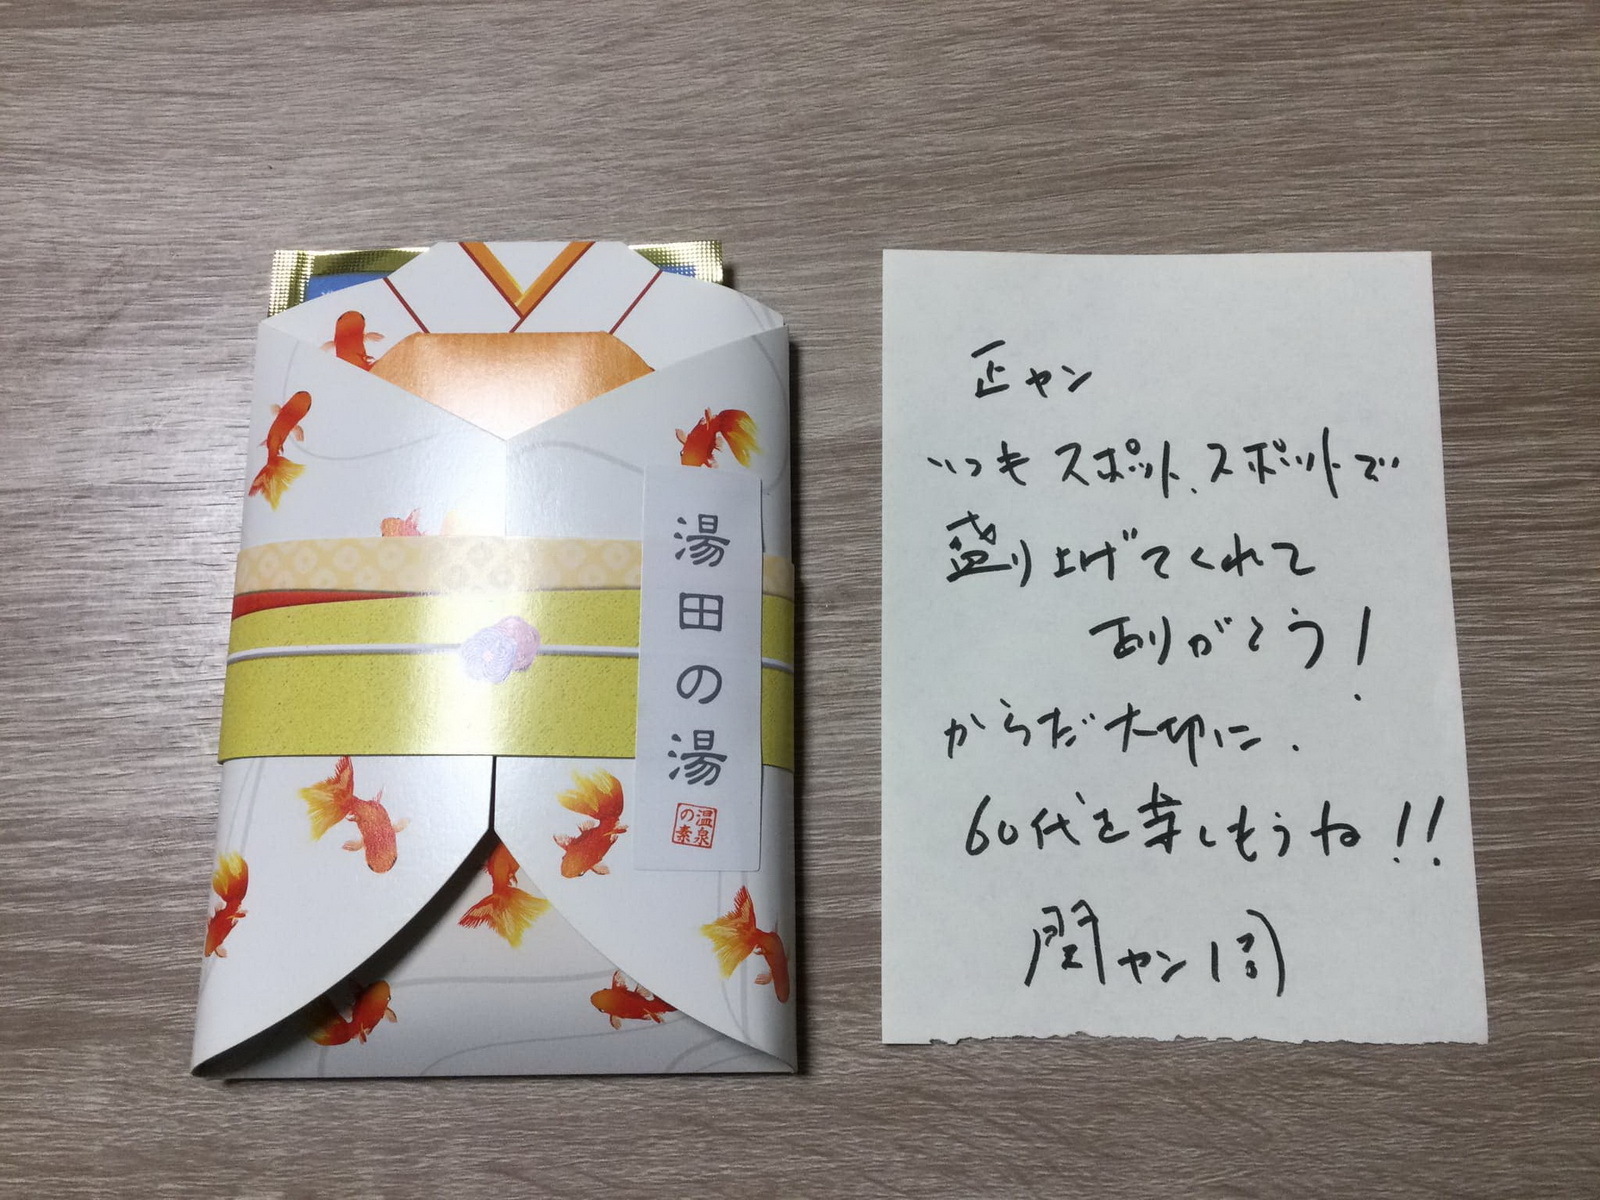 湯田の湯
温泉
の素
正ヤン
いつもスポット、スポットで
盛り上げてくれて
ありがとう!
からだ大切に.
60代を楽しもうね!!
ヤン